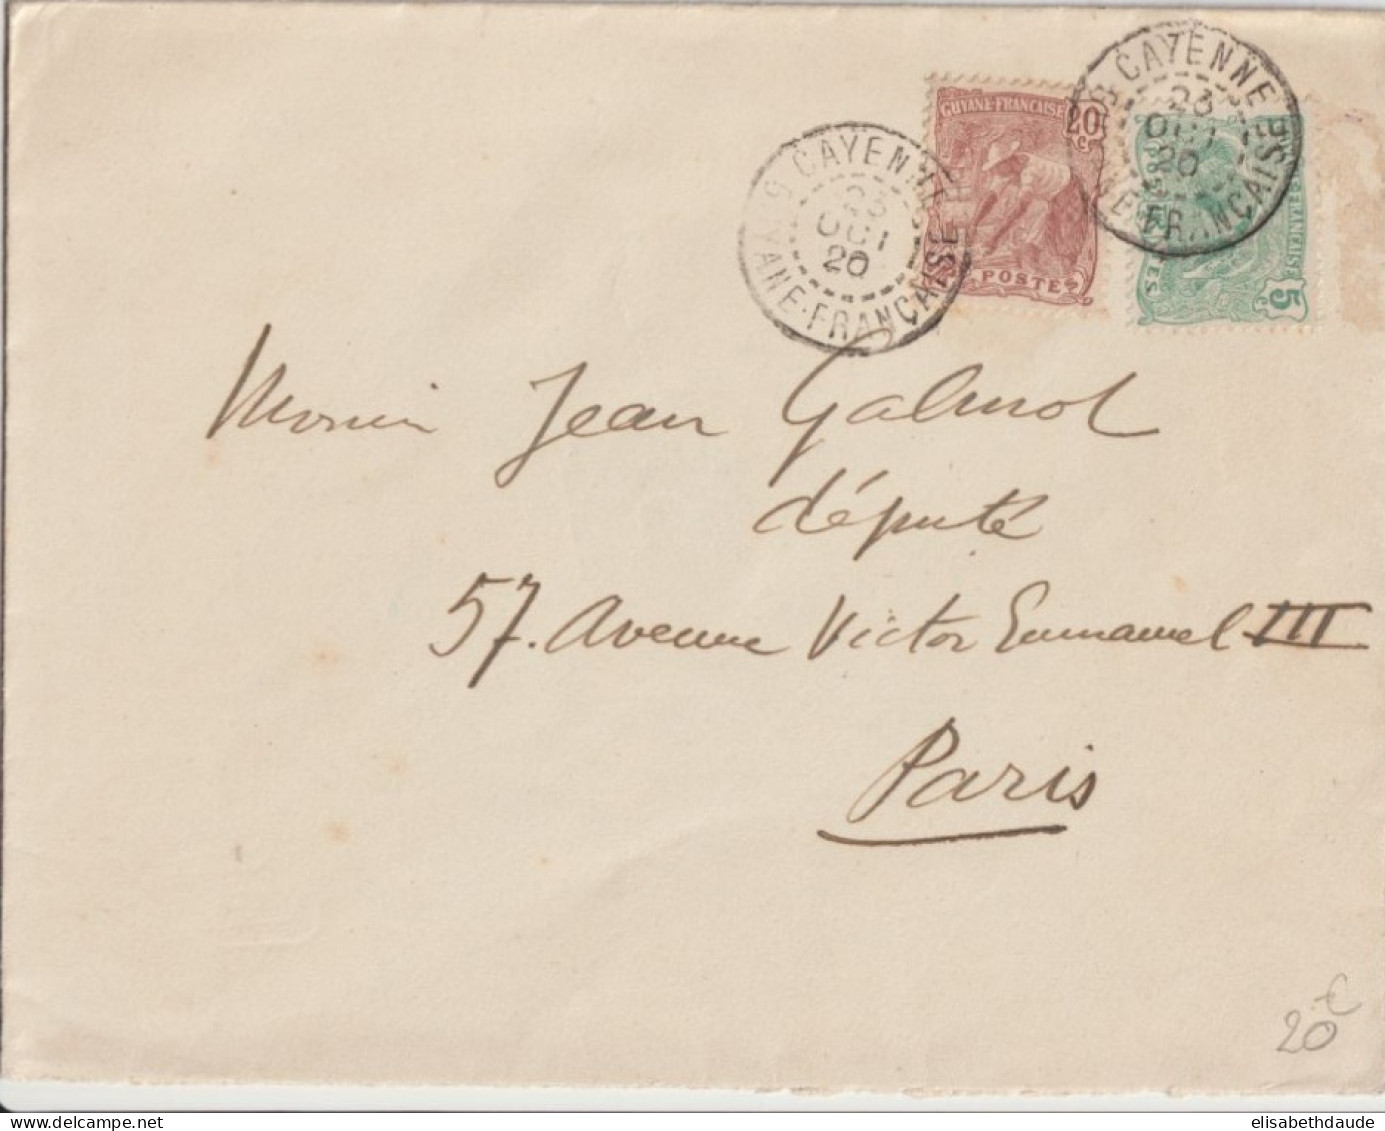 CAYENNE
23
OCT
20
GUYANE-FRANÇAISE
GUYANE-FRANÇAISE
20
c
POSTES
CAYENNE
23
OCT
20
GUYANE-FRANÇAISE
5
c
FRANÇAISE
Monsieur Jean Galmot
député
57. Avenue Victor Emmanuel III
Paris
20 €
elisabethdaude